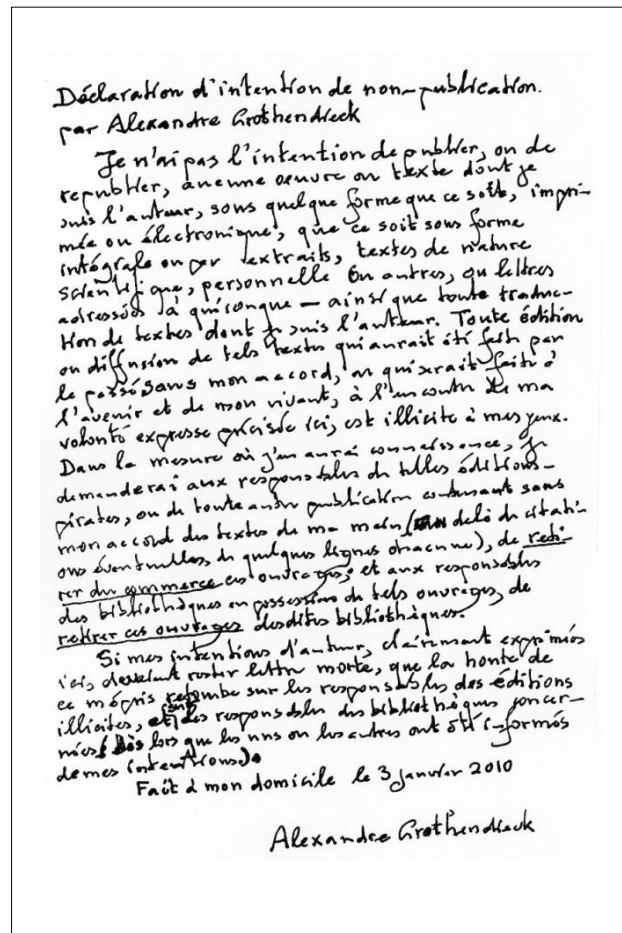 Déclaration d'intention de non-publication.
par Alexandre Grothendieck
Je n'ai pas l'intention de publier, ou de
republier, aucune oeuvre ou texte dont je
suis l'auteur, sous quelque forme que ce soit, impri-
mée ou électronique, que ce soit sous forme
intégrale ou par extraits, textes de nature
scientifique, personnelle ou autres, ou lettres
adressées à quiconque — ainsi que toute traduc-
tion de textes dont je suis l'auteur. Toute édition
ou diffusion de tels textes qui aurait été faite par
le passé sans mon accord, ou qui serait faite à
l'avenir et de mon vivant, à l'encontre de ma
volonté expresse précisée ici, est illicite à mes yeux.
Dans la mesure où j'en aurai connaissance, je
demanderai aux responsables de telles éditions-
pirates, ou de toute autre publication contenant sans
mon accord des textes de ma main (au delà de citati-
ons éventuelles, de quelques lignes chacune), de reti-
rer du commerce ces ouvrages; et aux responsables
des bibliothèques en possession de tels ouvrages, de
retirer ces ouvrages desdites bibliothèques.
Si mes intentions d'auteur, clairement exprimées
ici, devaient rester lettre morte, que la honte de
ce mépris retombe sur les responsables des éditions
illicites, et sur les responsables des bibliothèques concer-
nées (dès lors que les uns ou les autres ont été informés
de mes intentions).
Fait à mon domicile le 3 janvier 2010
Alexandre Grothendieck